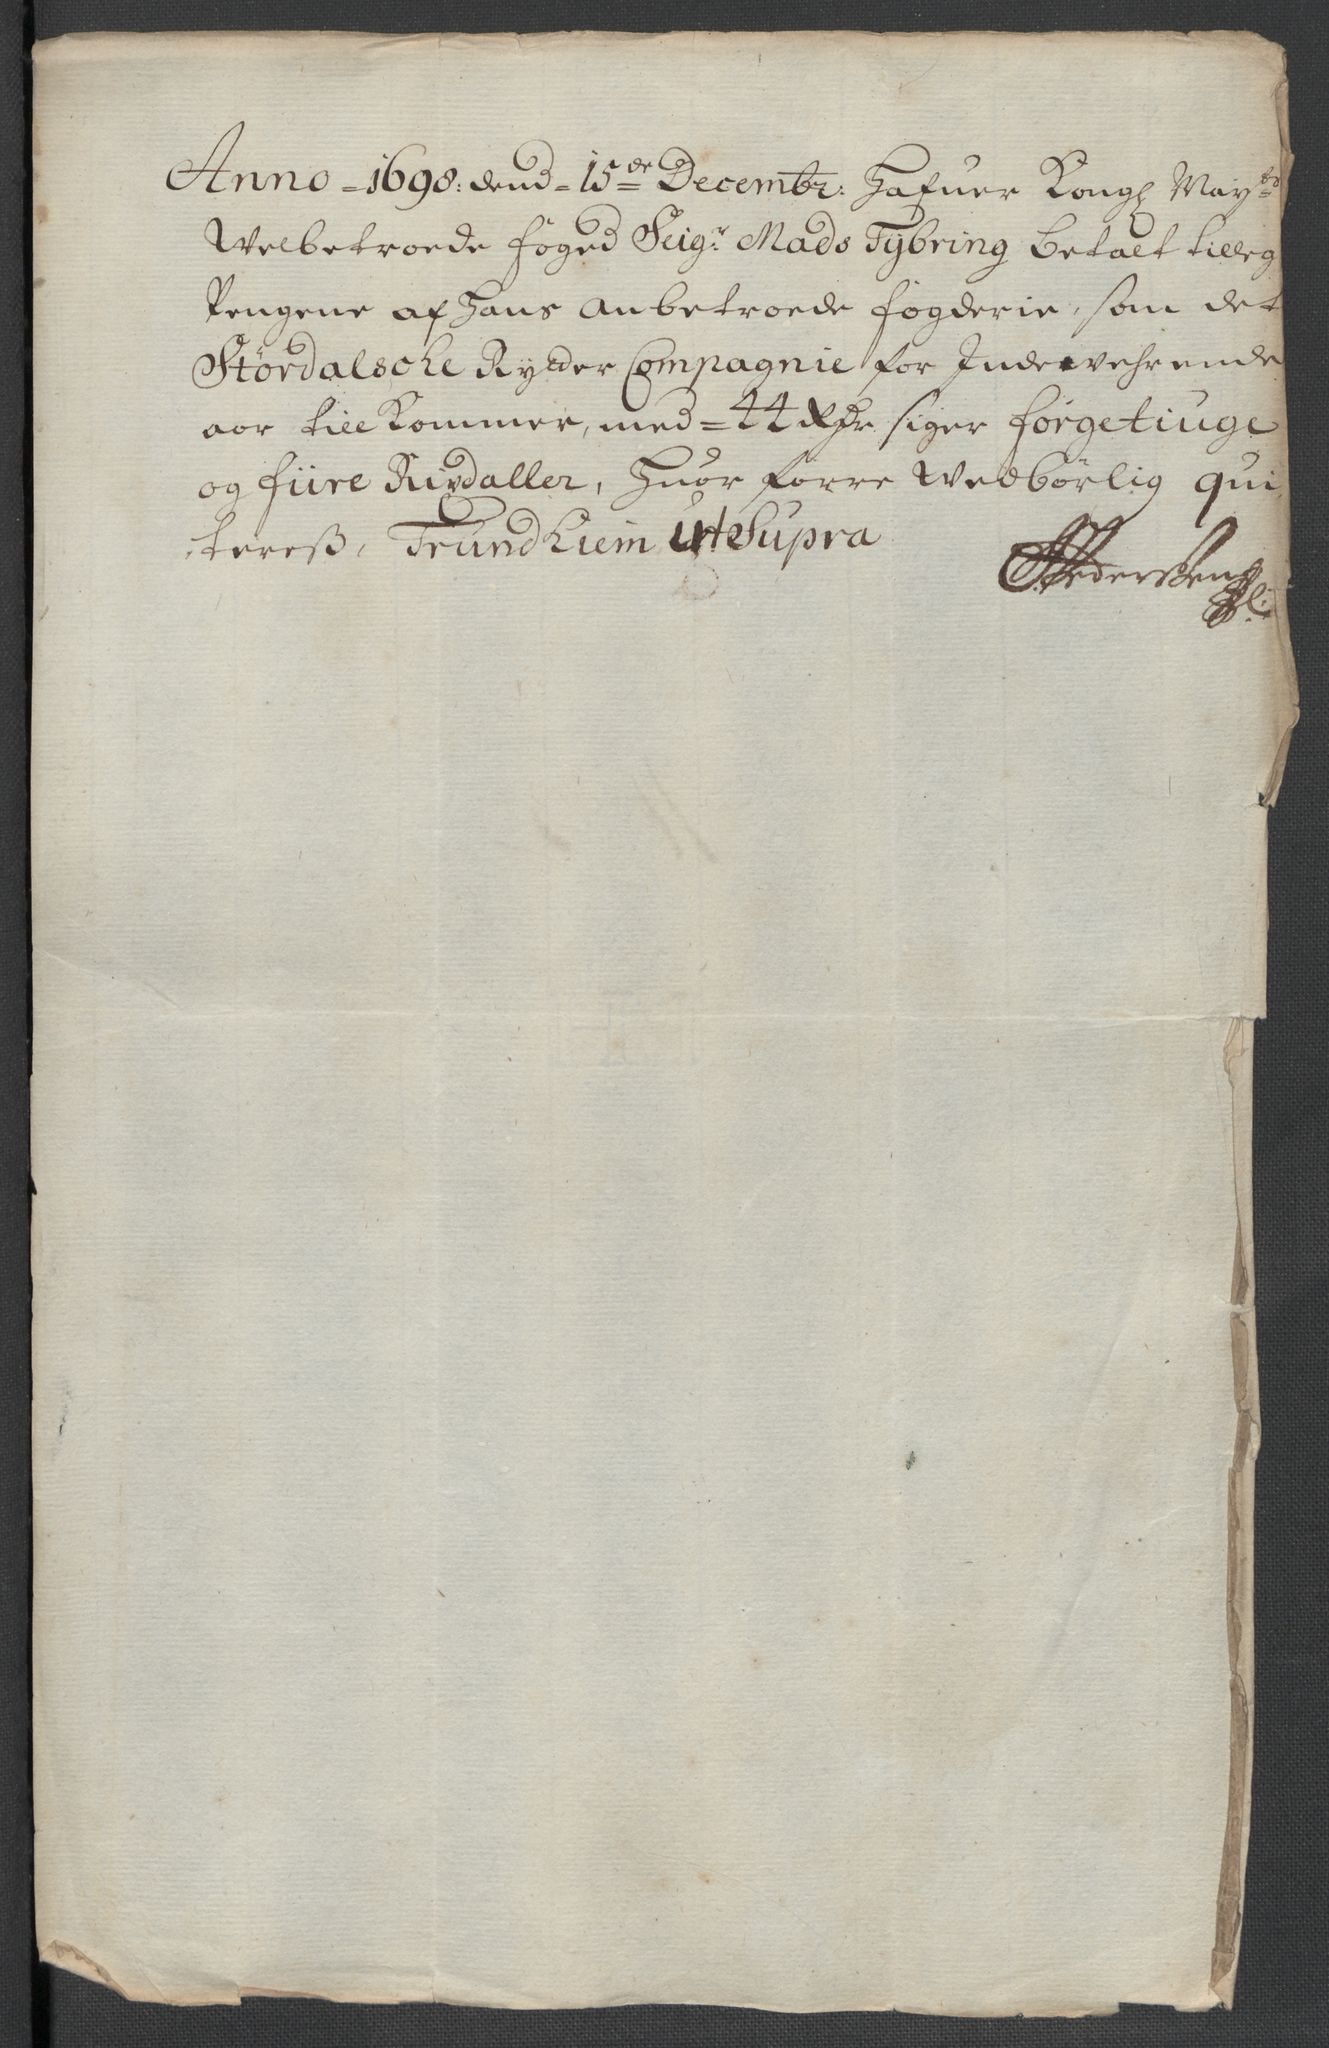 Anno - 1698: dend - 15de Decembr: Hafuer Kongl Maÿts
Velbetroede foged Seigr. Mads Tÿbring betalt tilleg
Pengene af hans anbetroede fogderie, som det
Stördalsche Rytter Compagnie for Indeverende
aar till kommer, med = 44 Rdr siger förgetiuge
og fiire Rixdaller, huor forre vedbörlig qui,
,tereß, Trundhiem ut Supra
Pedersken